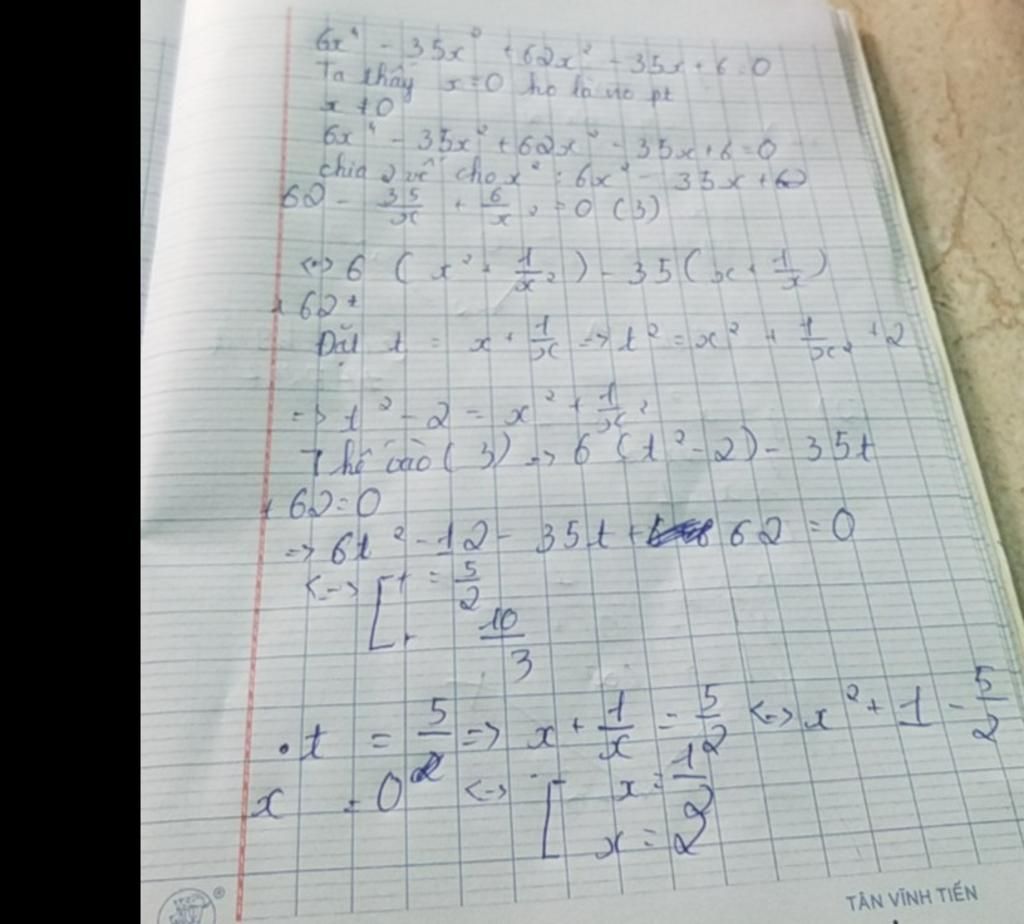 6x⁴ - 35x³ + 62x² - 35x + 6 = 0
Ta thấy x = 0 ko là no pt
x ≠ 0
6x⁴ - 35x³ + 62x² - 35x + 6 = 0
chia 2 vế cho x²: 6x² - 35x +
62 - 35/x + 6/x² = 0 (3)
<=> 6 (x² + 1/x²) - 35 (x + 1/x)
+ 62
Đặt t = x + 1/x => t² = x² + 1/x² + 2
=> t² - 2 = x² + 1/x²
Thế vào (3) => 6 (t² - 2) - 35t
+ 62 = 0
=> 6t² - 12 - 35t + 62 = 0
<=> [ t = 5/2
10/3
• t = 5/2 => x + 1/x = 5/2 <=> x² + 1 - 5/2
x = 0 <=> [ x = 1/2
x = 2
TÂN VĨNH TIẾN